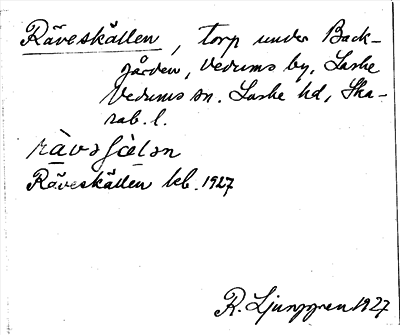 Räveskällen, torp under Back-
gården, Vedums by, Laske
Vedums sn. Laske hd, Ska-
rab. l.
rävəʃälən
Räveskällen kb. 1927
R. Ljunggren 1927